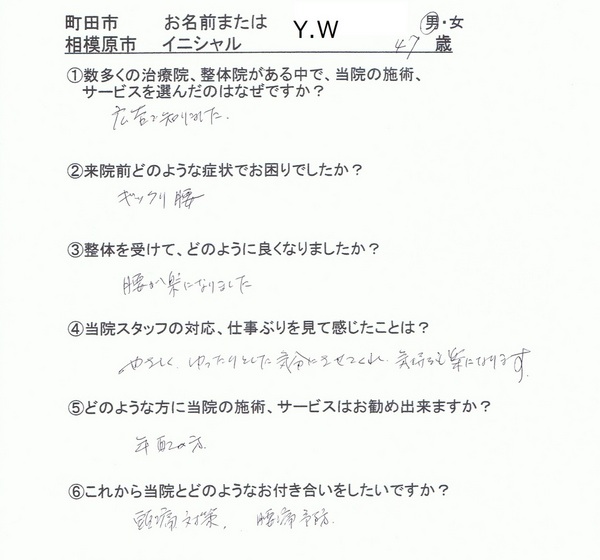 町田市 お名前または Y.W 男・女
相模原市 イニシャル 47 歳
①数多くの治療院、整体院がある中で、当院の施術、
サービスを選んだのはなぜですか？
広告で知りました.
②来院前どのような症状でお困りでしたか？
ギックリ腰
③整体を受けて、どのように良くなりましたか？
腰が楽になりました
④当院スタッフの対応、仕事ぶりを見て感じたことは？
やさしく、ゆったりとした気分にさせてくれ、気持ちも楽になります.
⑤どのような方に当院の施術、サービスはお勧め出来ますか？
年配の方.
⑥これから当院とどのようなお付き合いをしたいですか？
頭痛対策, 腰痛予防.